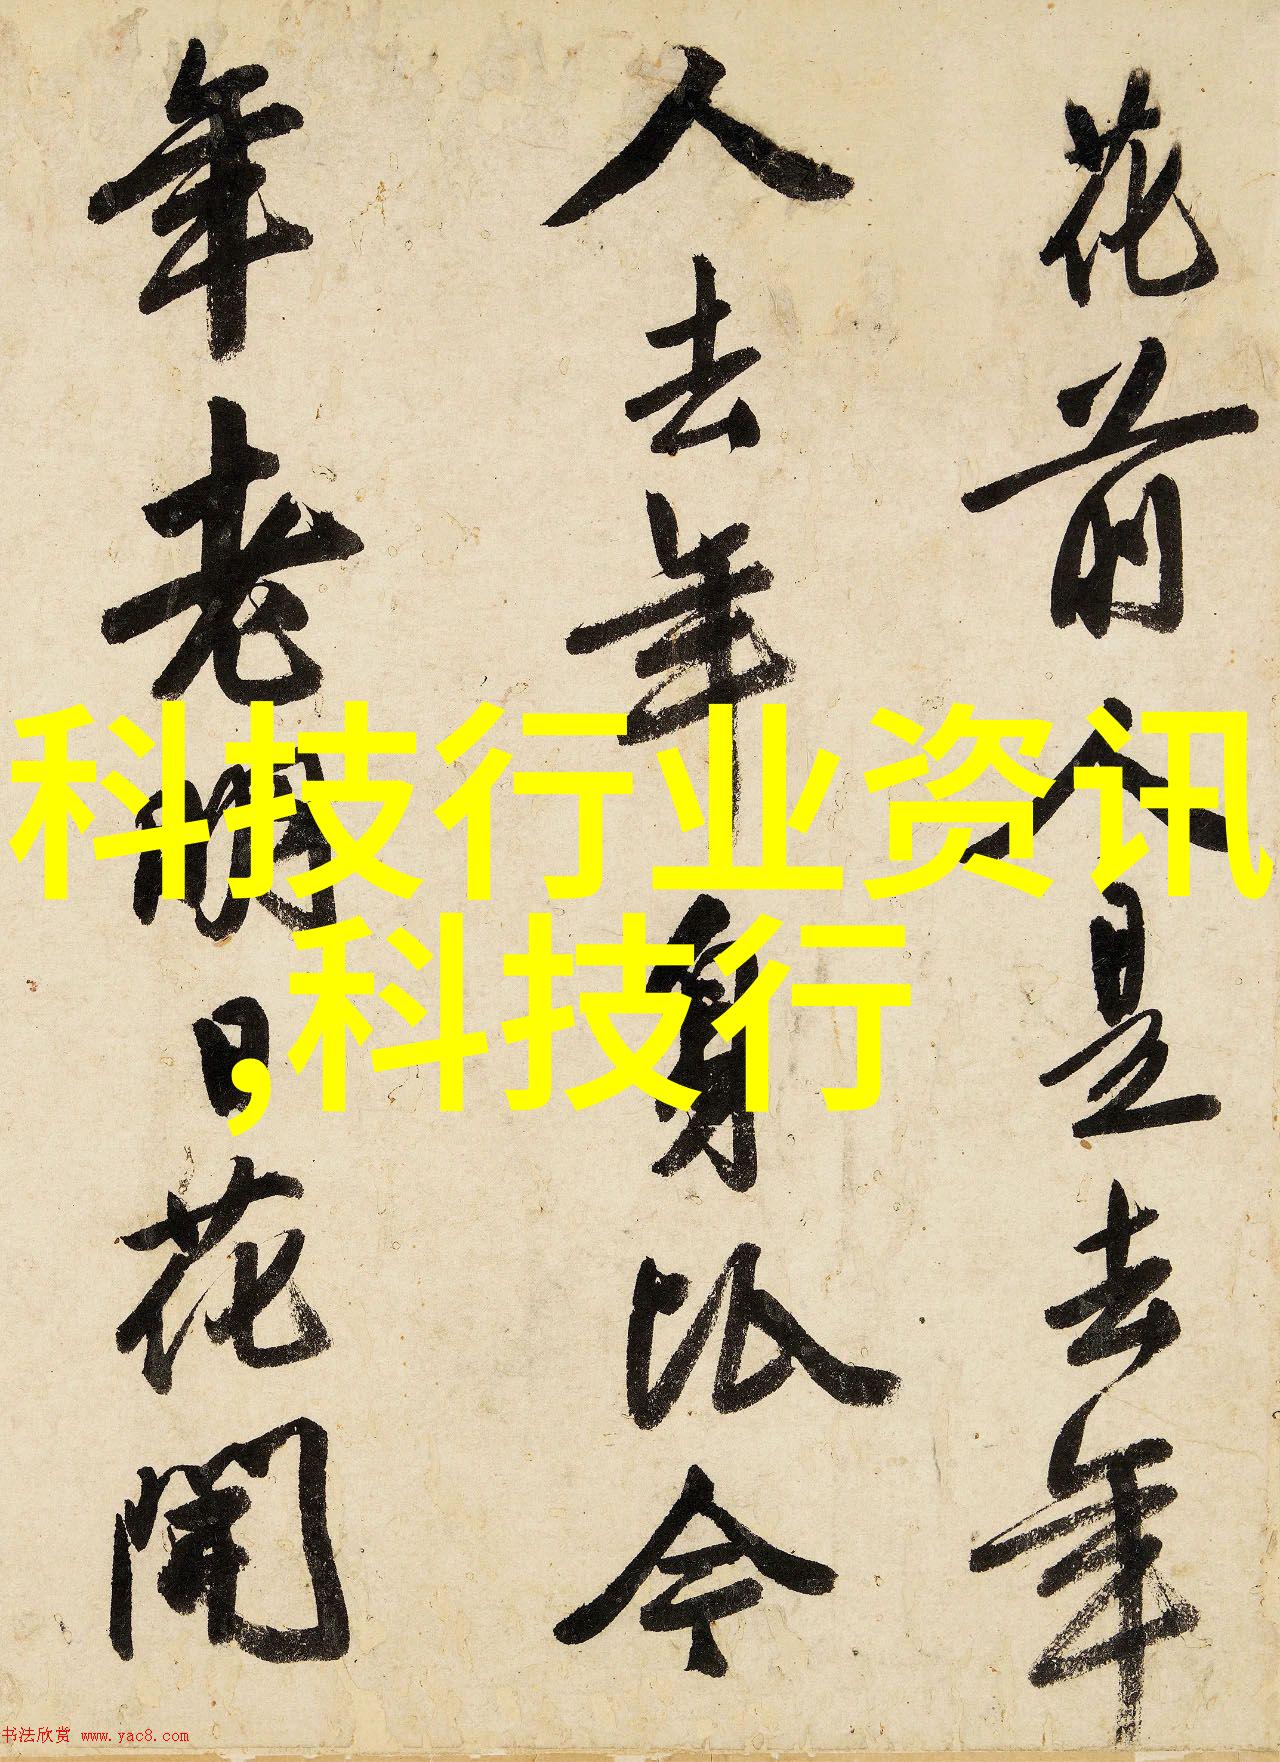 花前人是去年
人去年身比今
年老明日花開
科技行业资讯
,科技行
书法欣赏 www.yac8.com